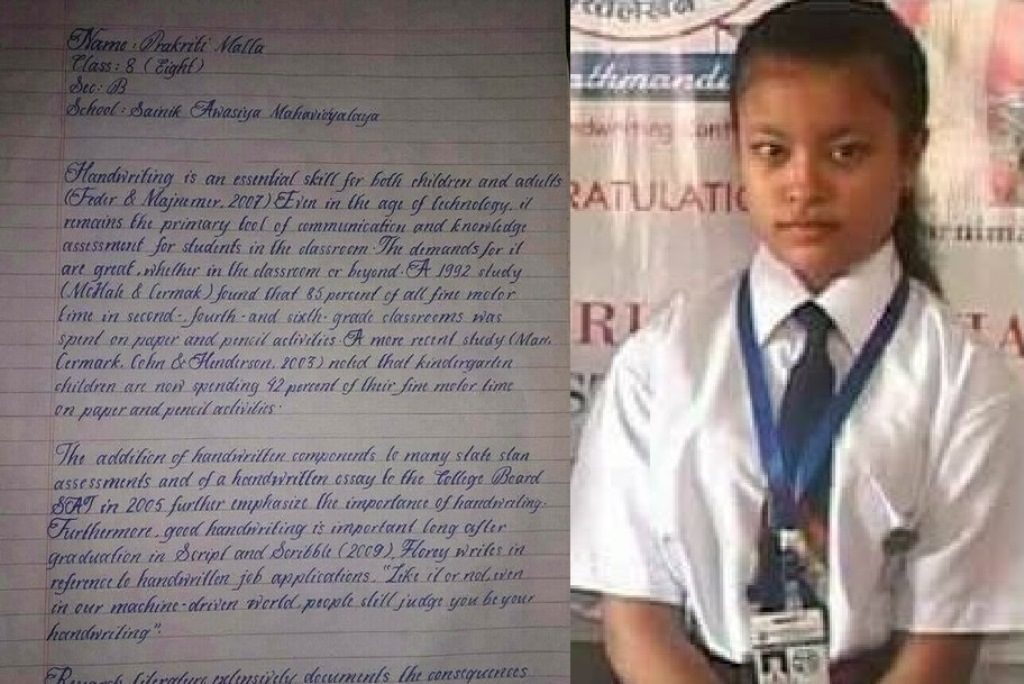 Name : Prakriti Malla
Class : 8 ( Eight )
Sec : B
School : Sainik Awasiya Mahavidyalaya
Handwriting is an essential skill for both children and adults
(Feder & Majnemer, 2007) Even in the age of technology, it
remains the primary tool of communication and knowledge
assessment for students in the classroom. The demands for it
are great, whether in the classroom or beyond. A 1992 study
(McHale & Cermak) found that 85 percent of all fine motor
time in second-, fourth- and sixth- grade classrooms was
spent on paper and pencil activities. A more recent study (Marr,
Cermark, Cohn & Henderson, 2003) noted that kindergarten
children are now spending 42 percent of their fine motor time
on paper and pencil activities.
The addition of handwritten components to many state stan
assessments and of a handwritten essay to the College Board
SAT in 2005 further emphasize the importance of handwriting.
Furthermore, good handwriting is important long after
graduation in Script and Scribble (2009), Florey writes in
reference to handwritten job applications, "Like it or not, even
in our machine-driven world, people still judge you be your
handwriting".
Research literature extensively documents the consequences
athmandu
RATULATIO